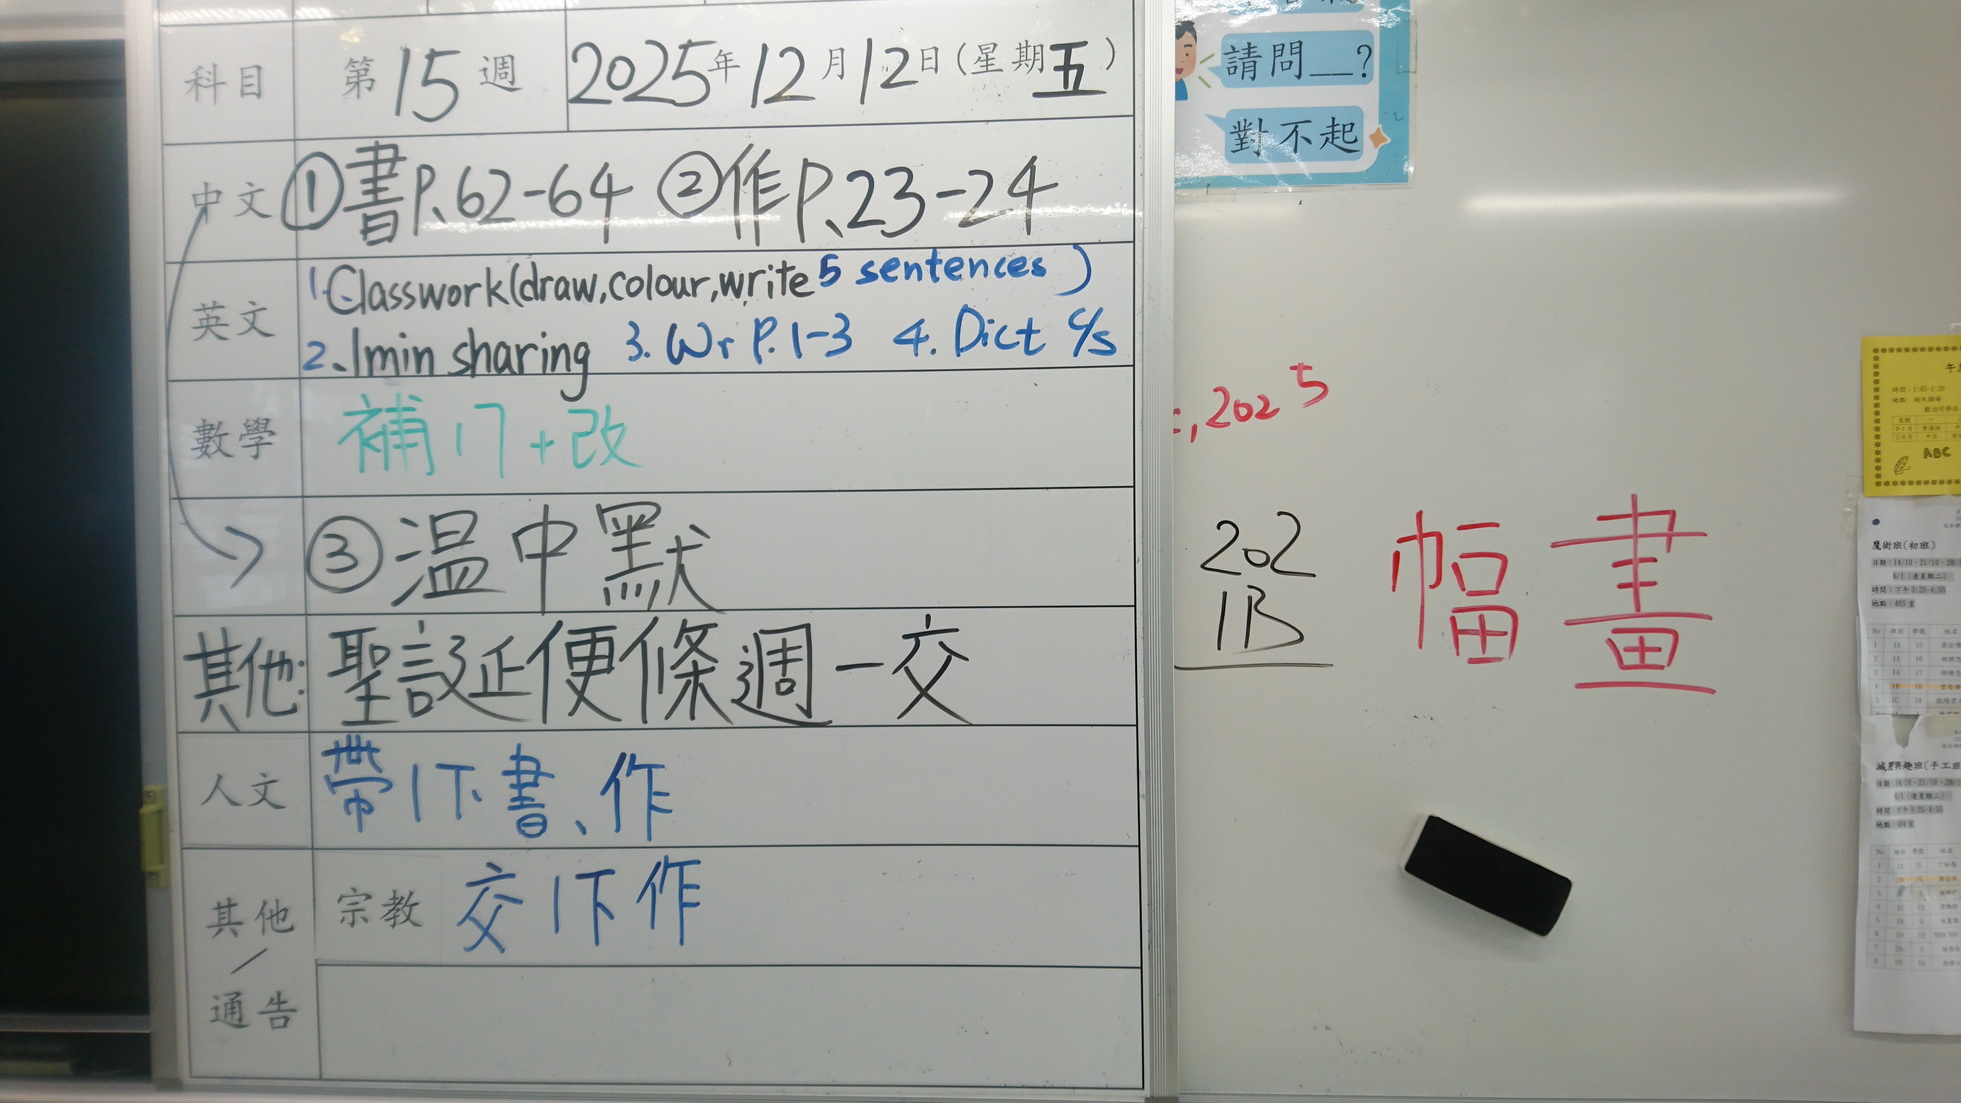 科目 第15週 2025年12月12日(星期五)
中文 ①書P.62-64 ②作P.23-24
英文 1.Classwork(draw,colour,write 5 sentences)
2.1min sharing 3.Wr P.1-3 4.Dict c/s
數學 補17+改
③溫中默
其他: 聖誕便條週一交
人文 帶1下書、作
其他/通告 宗教 交1下作
請問__?
對不起
,2025
202
1B
幅畫
ABC
魔術班(初班)
時間:下午3:25-4:55